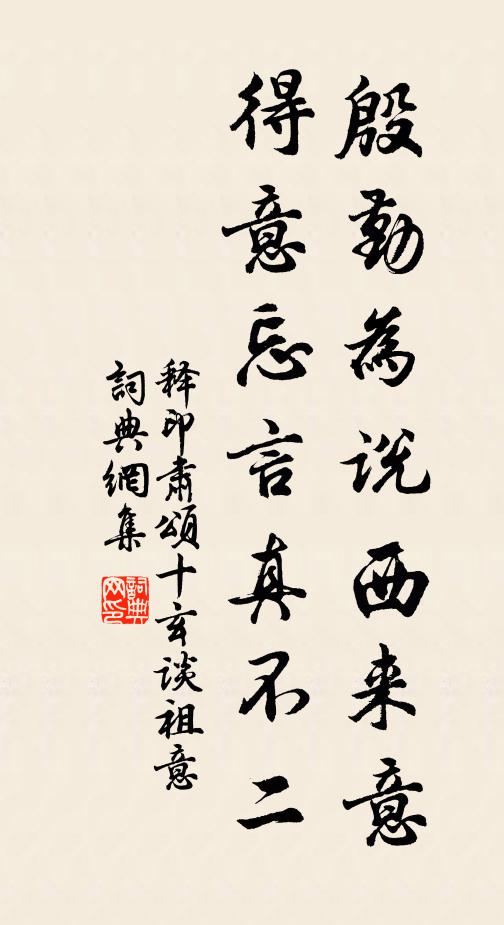 殷勤為説西来意
得意忘言真不二
释印肃頌十玄談祖意
詞典網集
詞典網印